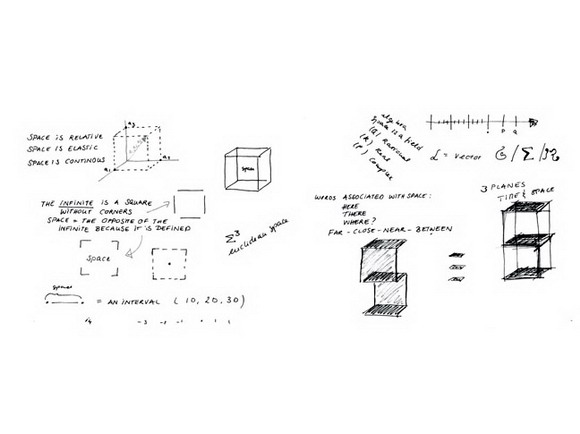 SPACE IS RELATIVE
SPACE IS ELASTIC
SPACE IS CONTINOUS
a3
a1
space
THE INFINITE IS A SQUARE
WITHOUT CORNERS
SPACE = THE OPPOSITE OF THE
INFINITE BECAUSE IT IS DEFINED
Space
Σ3
euclidean space
space
= AN INTERVAL (10, 20, 30)
-3 -2 -1 0 1 2
algebra
Space is a field
(Q) Rational
(R) Real
(C) Complex
= vector
WORDS ASSOCIATED WITH SPACE:
HERE
THERE
WHERE?
FAR - CLOSE - NEAR - BETWEEN
3 PLANES
TIME & SPACE